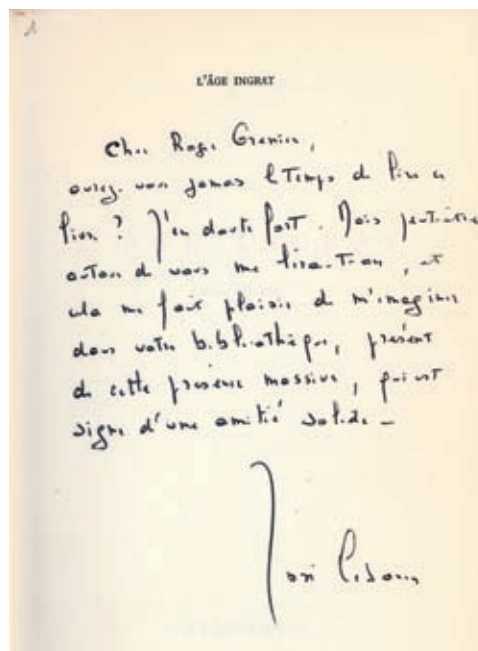 L'ÂGE INGRAT
Cher Roger Grenier,
aurez-vous jamais le Temps de lire ce
livre ? J'en doute fort. Mais peut-être
autour de vous me lira-t-on, et
cela me fait plaisir de m'imaginer
dans votre bibliothèque, présent
de cette présence massive, qui est
signe d'une amitié solide –
José Cabanis